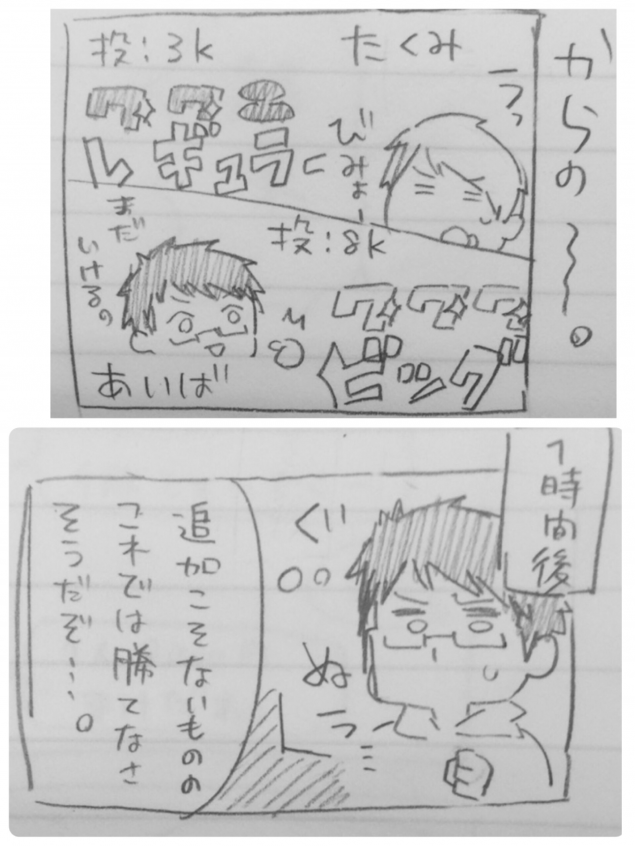 からの〜〜。
たくみ
投:3k
うっ
びみょー
ワ ワ
レギュラー
投:8k
ワ ワ ワ
ビッグ
まだ
いける。
あいば
1時間後
ぐ…
ぬぅ…
追加こそないものの
これでは勝てなさ
そうだぞ…。